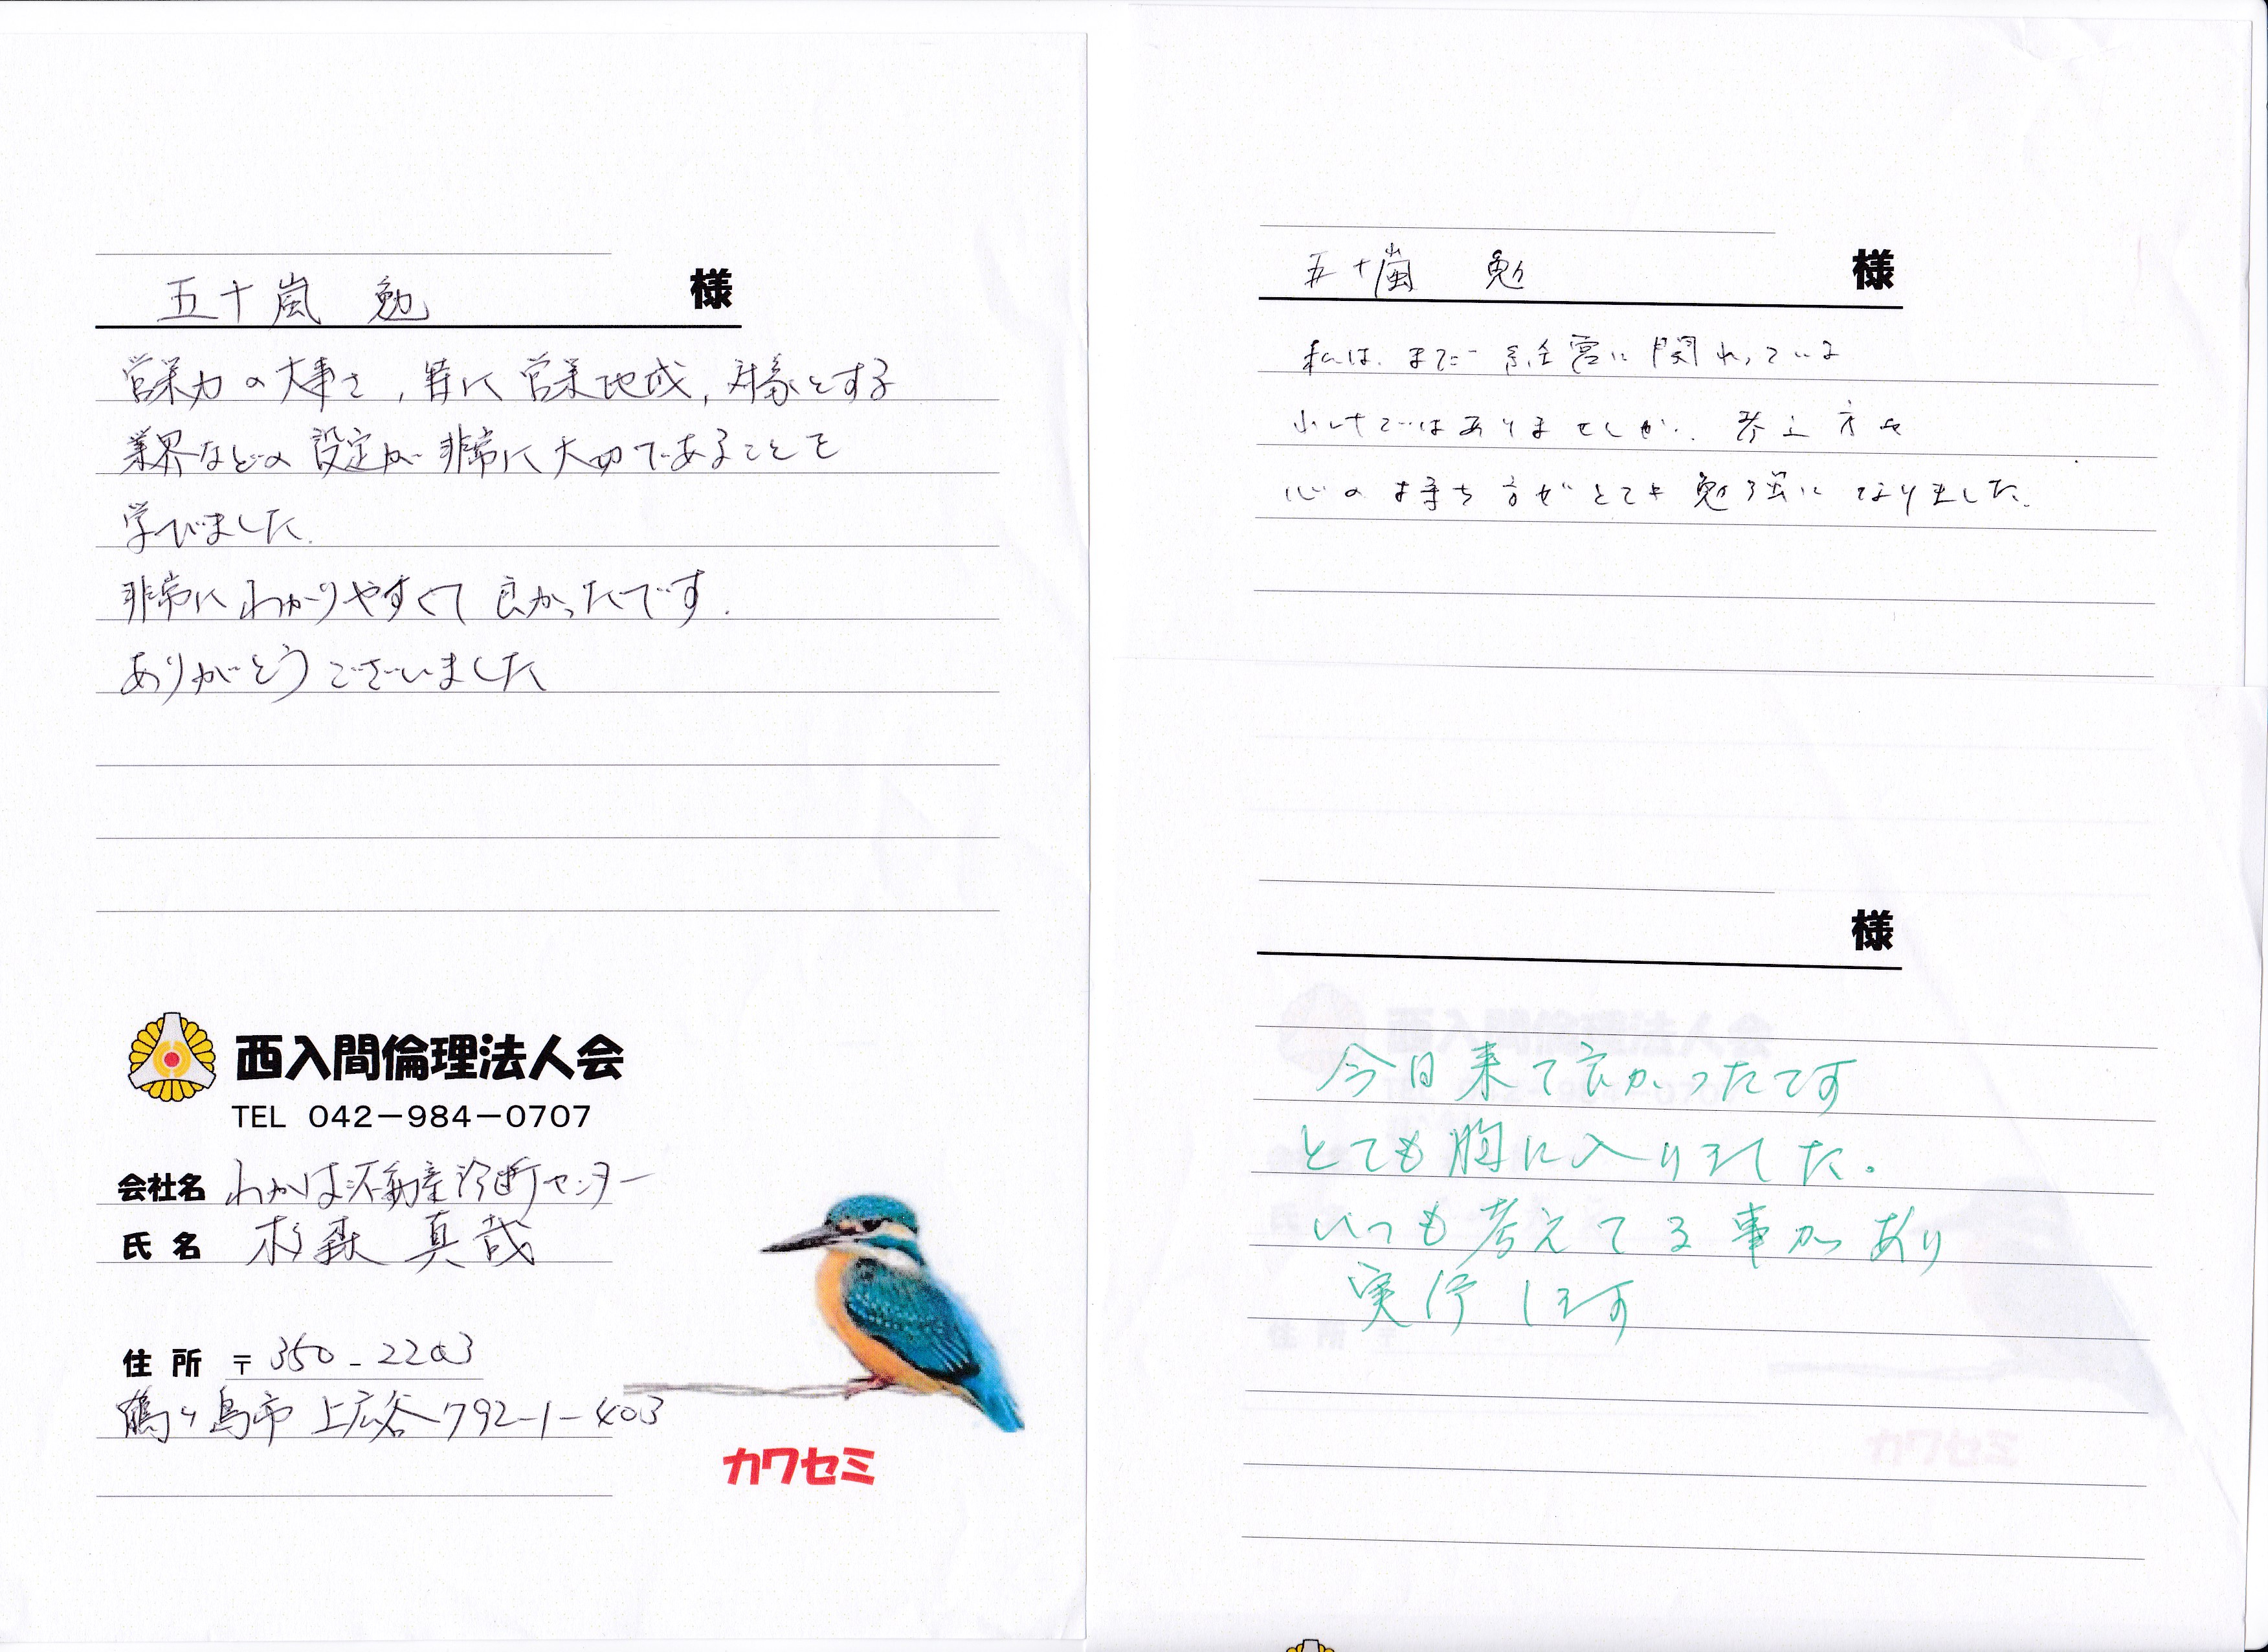 五十嵐 勉 様
営業力の大事さ,特に営業地域,対象とする
業界などの設定が非常に大切であることを
学びました.
非常にわかりやすくて良かったです.
ありがとうございました
西入間倫理法人会
TEL 042-984-0707
会社名 わかば不動産診断センター
氏名 杉森 真哉
住所 〒350-2203
鶴ヶ島市上広谷792-1-403
カワセミ
五十嵐 勉 様
私は、まだ経営に関わっている
心の持ち方がとても勉強になりました.
様
今日来て良かったです
とても胸に入りました。
いつも考えてる事があり
実行します